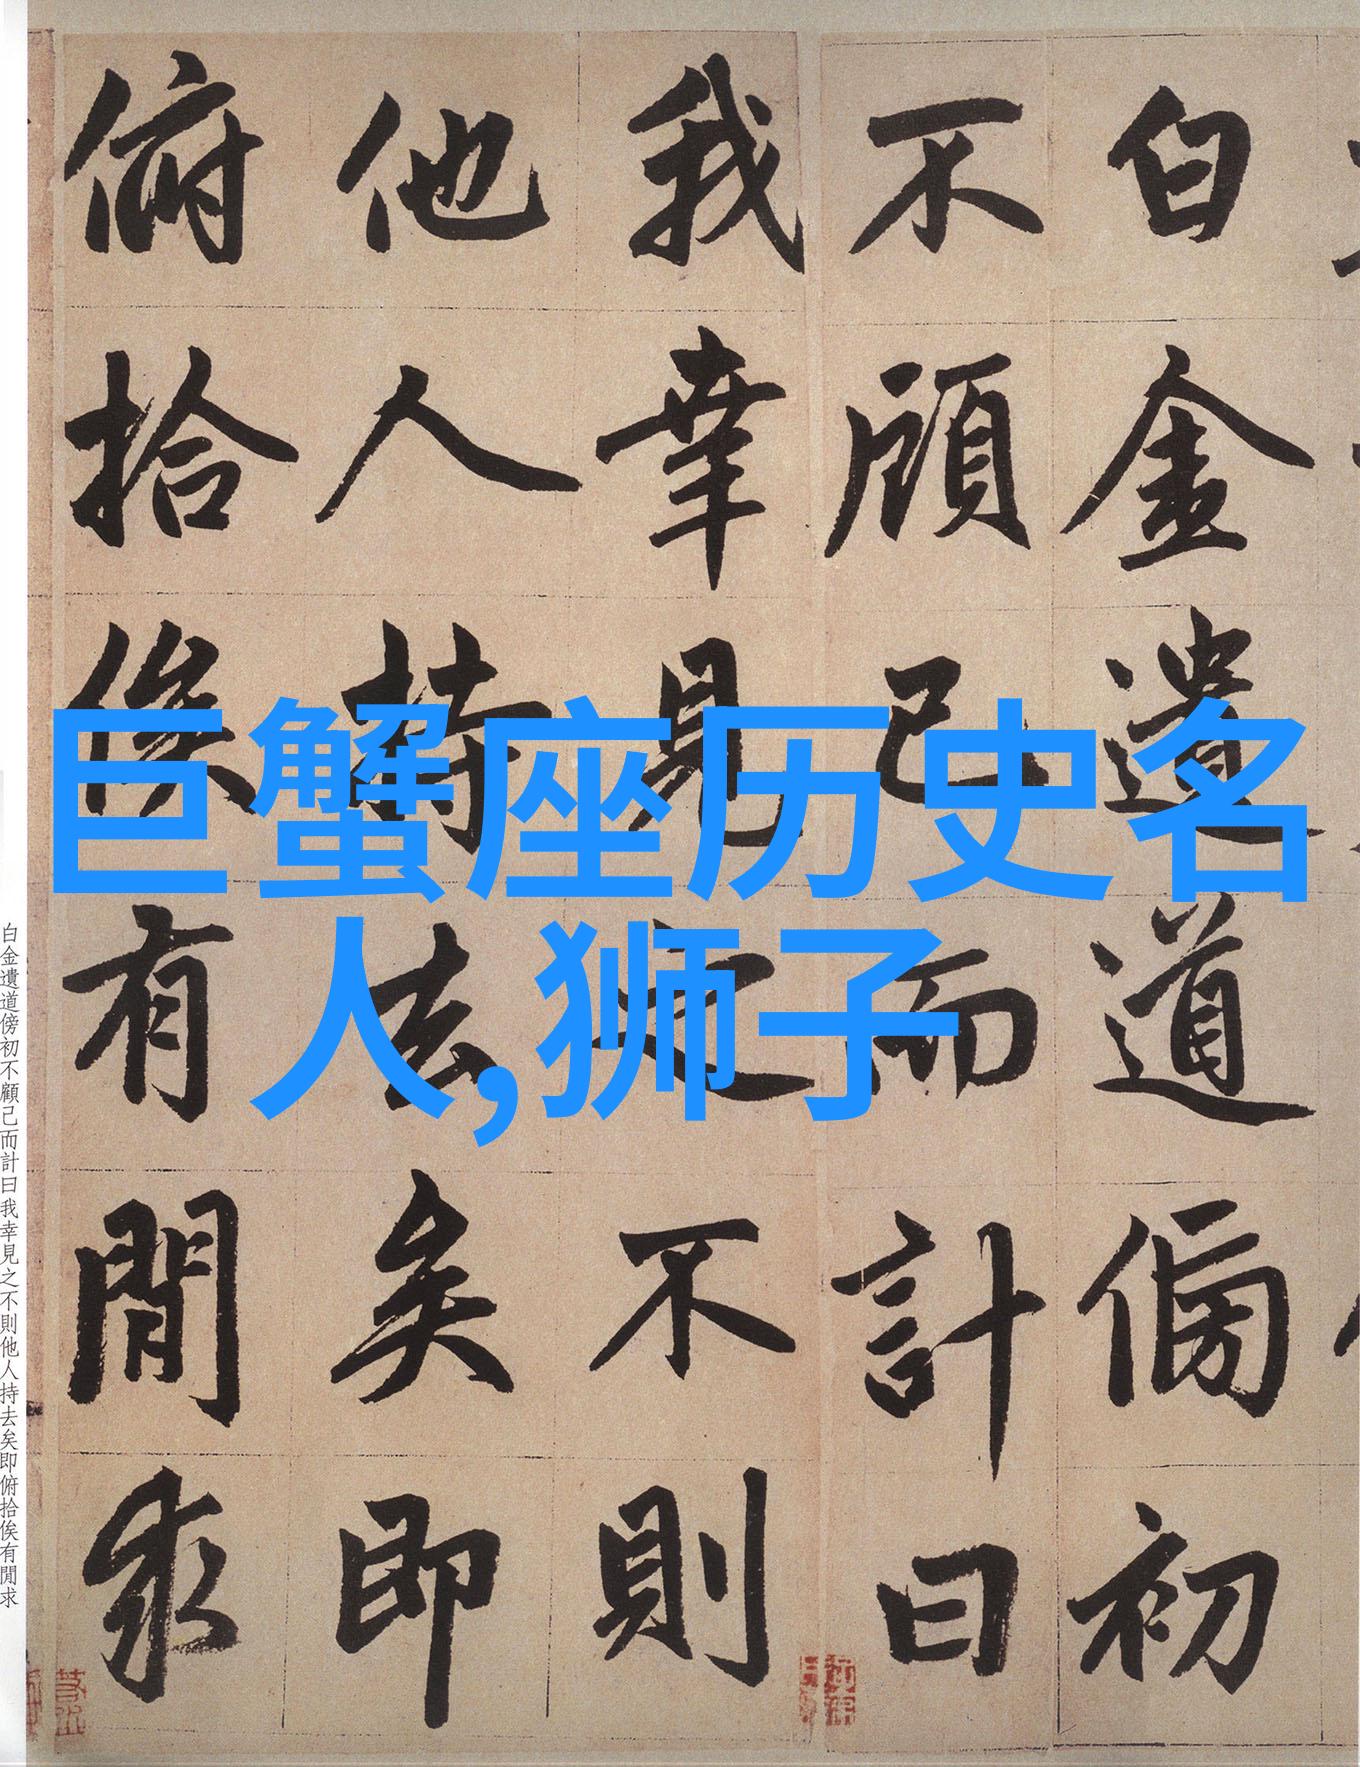 白金遺道傍初
不顧己而計曰
我幸見之不則
他人持去矣即
俯拾俟有閒求
巨蟹座历史名
人,狮子
白金遺道傍初不顧己而計曰我幸見之不則他人持去矣即俯拾俟有閒求